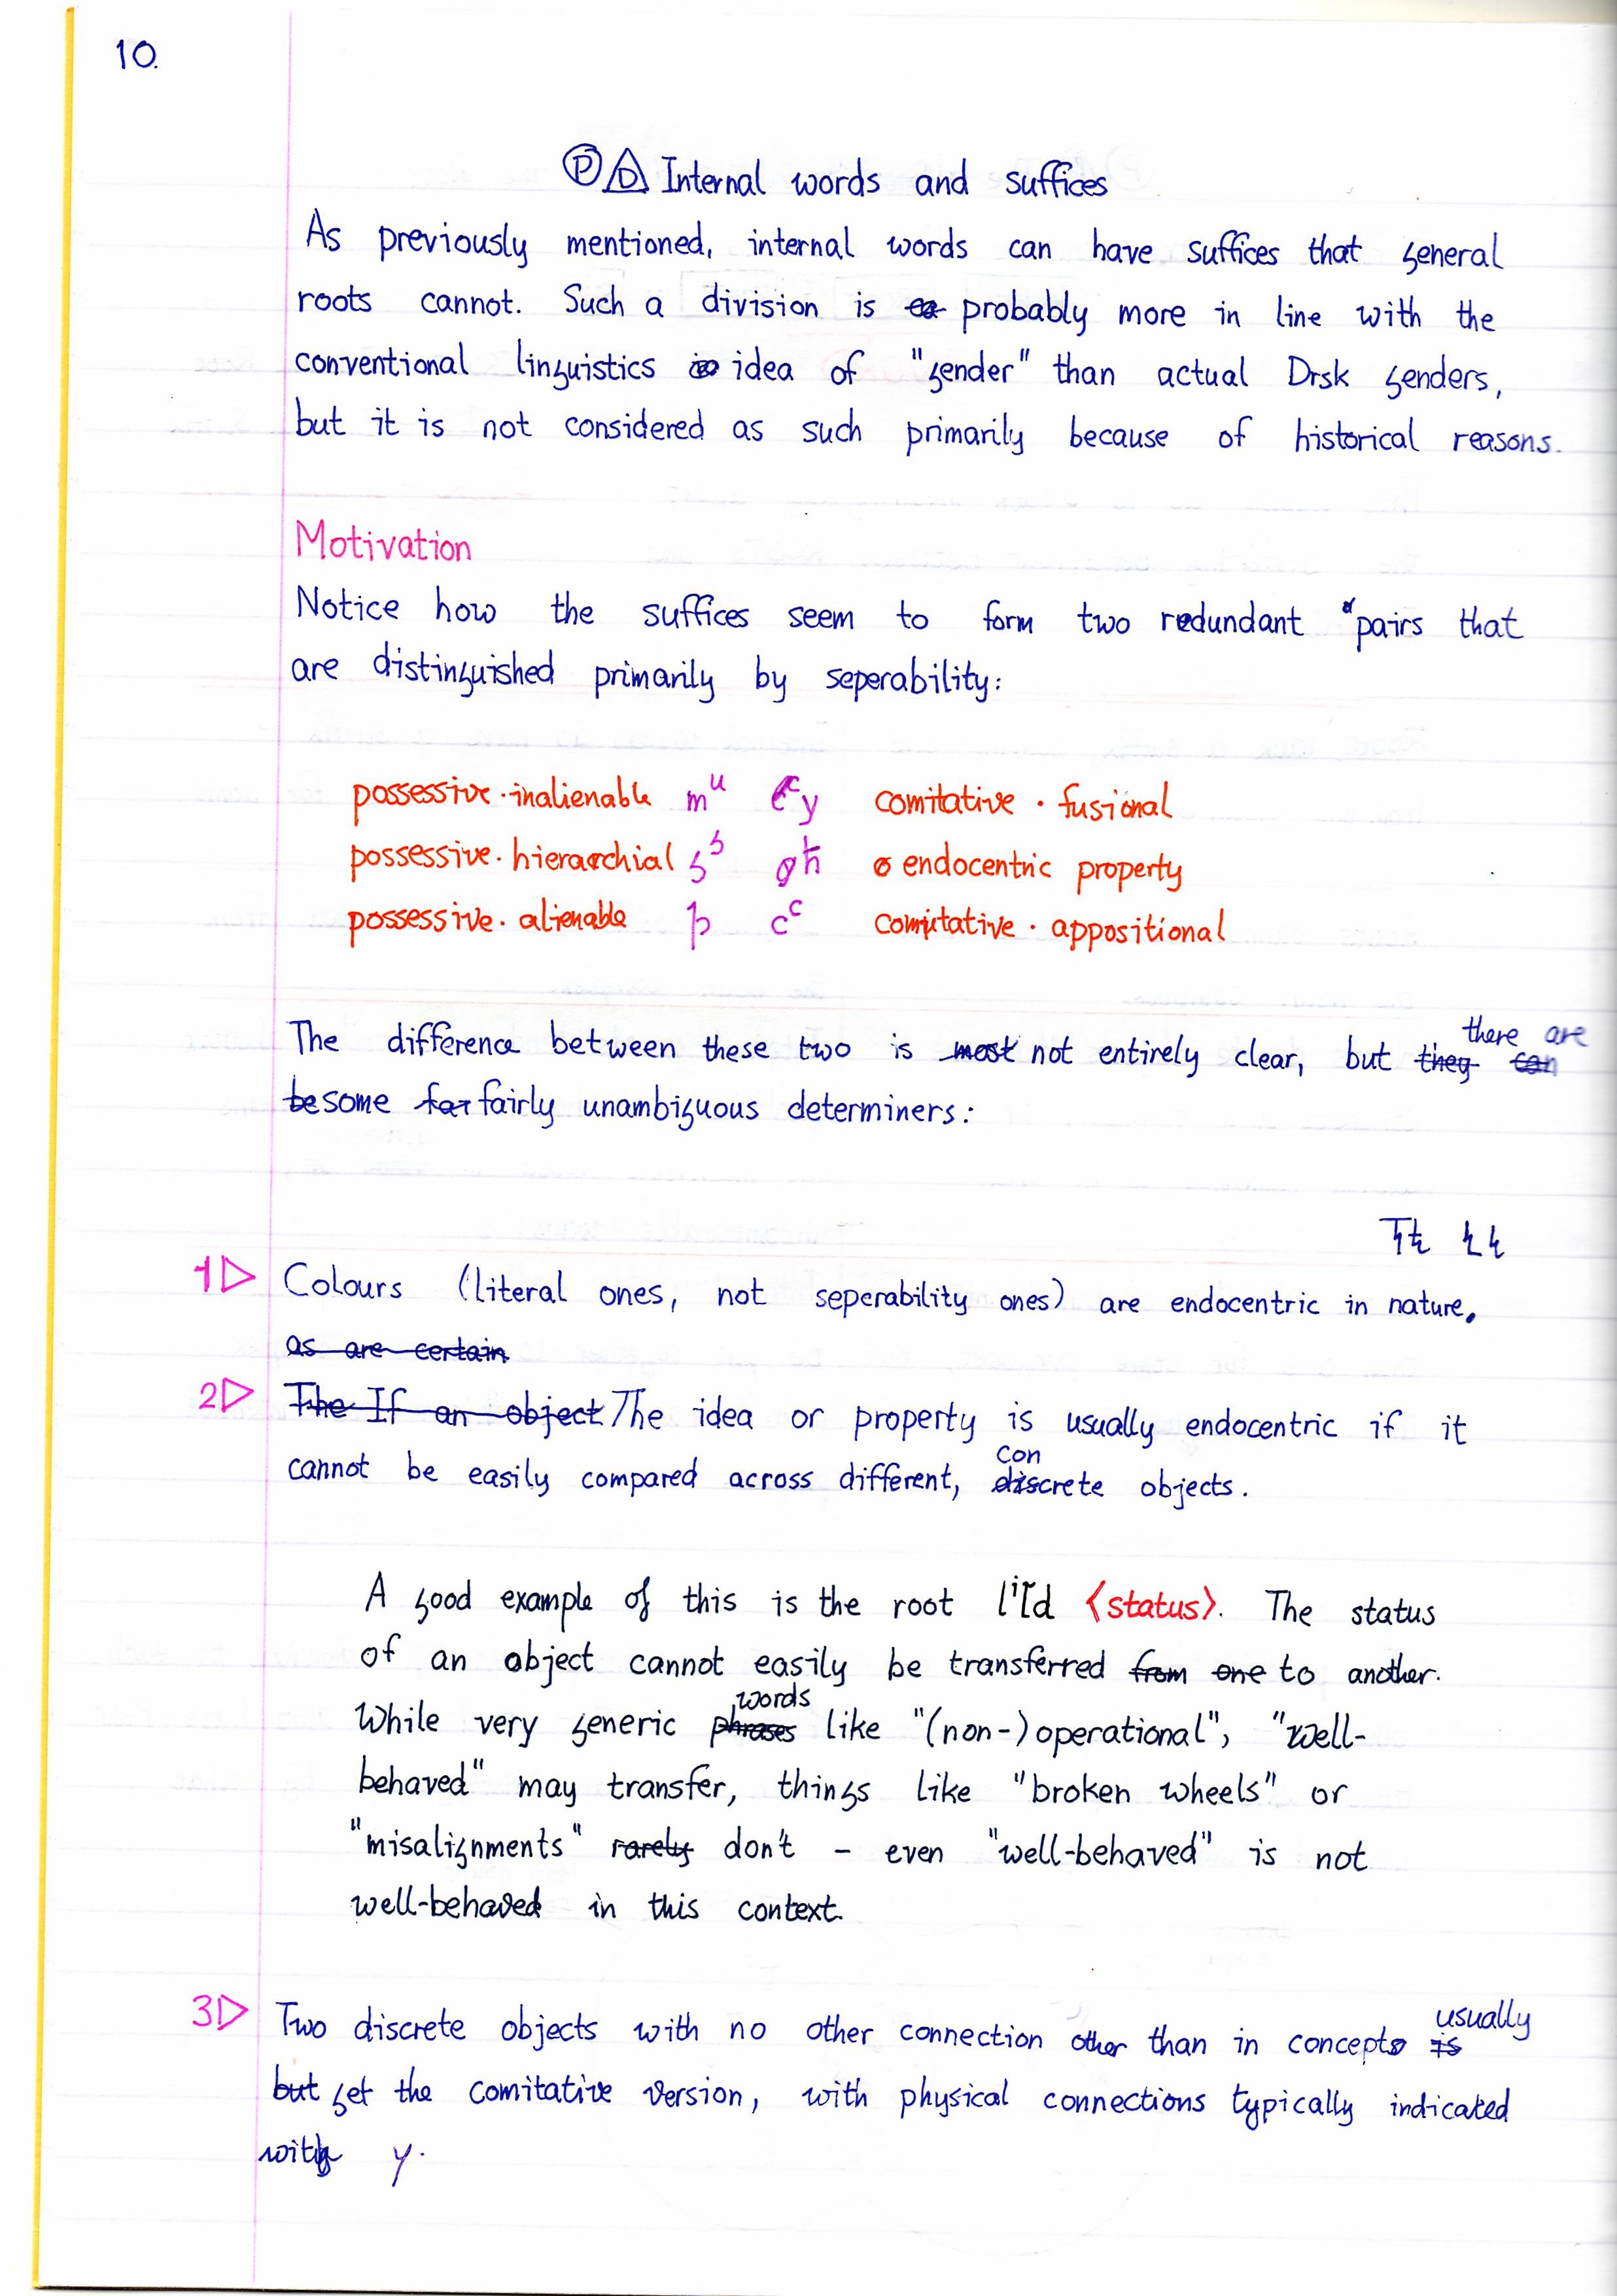 10.
Ⓟ Internal words and suffices
As previously mentioned, internal words can have suffices that general
roots cannot. Such a division is probably more in line with the
conventional linguistics idea of "gender" than actual Drsk genders,
but it is not considered as such primarily because of historical reasons.
Motivation
Notice how the suffices seem to form two redundant pairs that
are distinguished primarily by seperability:
possessive·inalienable mᵘ y comitative · fusional
possessive·hierarchial endocentric property
possessive·alienable cᶜ comitative · appositional
The difference between these two is not entirely clear, but there are
some fairly unambiguous determiners:
1▷ Colours (literal ones, not seperability ones) are endocentric in nature.
as are certain
2▷ The If an object The idea or property is usually endocentric if it
cannot be easily compared across different, concrete objects.
A good example of this is the root <status>. The status
of an object cannot easily be transferred from one to another.
While very generic words like "(non-)operational", "well-
behaved" may transfer, things like "broken wheels" or
"misalignments" rarely don't – even "well-behaved" is not
well-behaved in this context.
3▷ Two discrete objects with no other connection other than in concept usually
but get the comitative version, with physical connections typically indicated
with y.